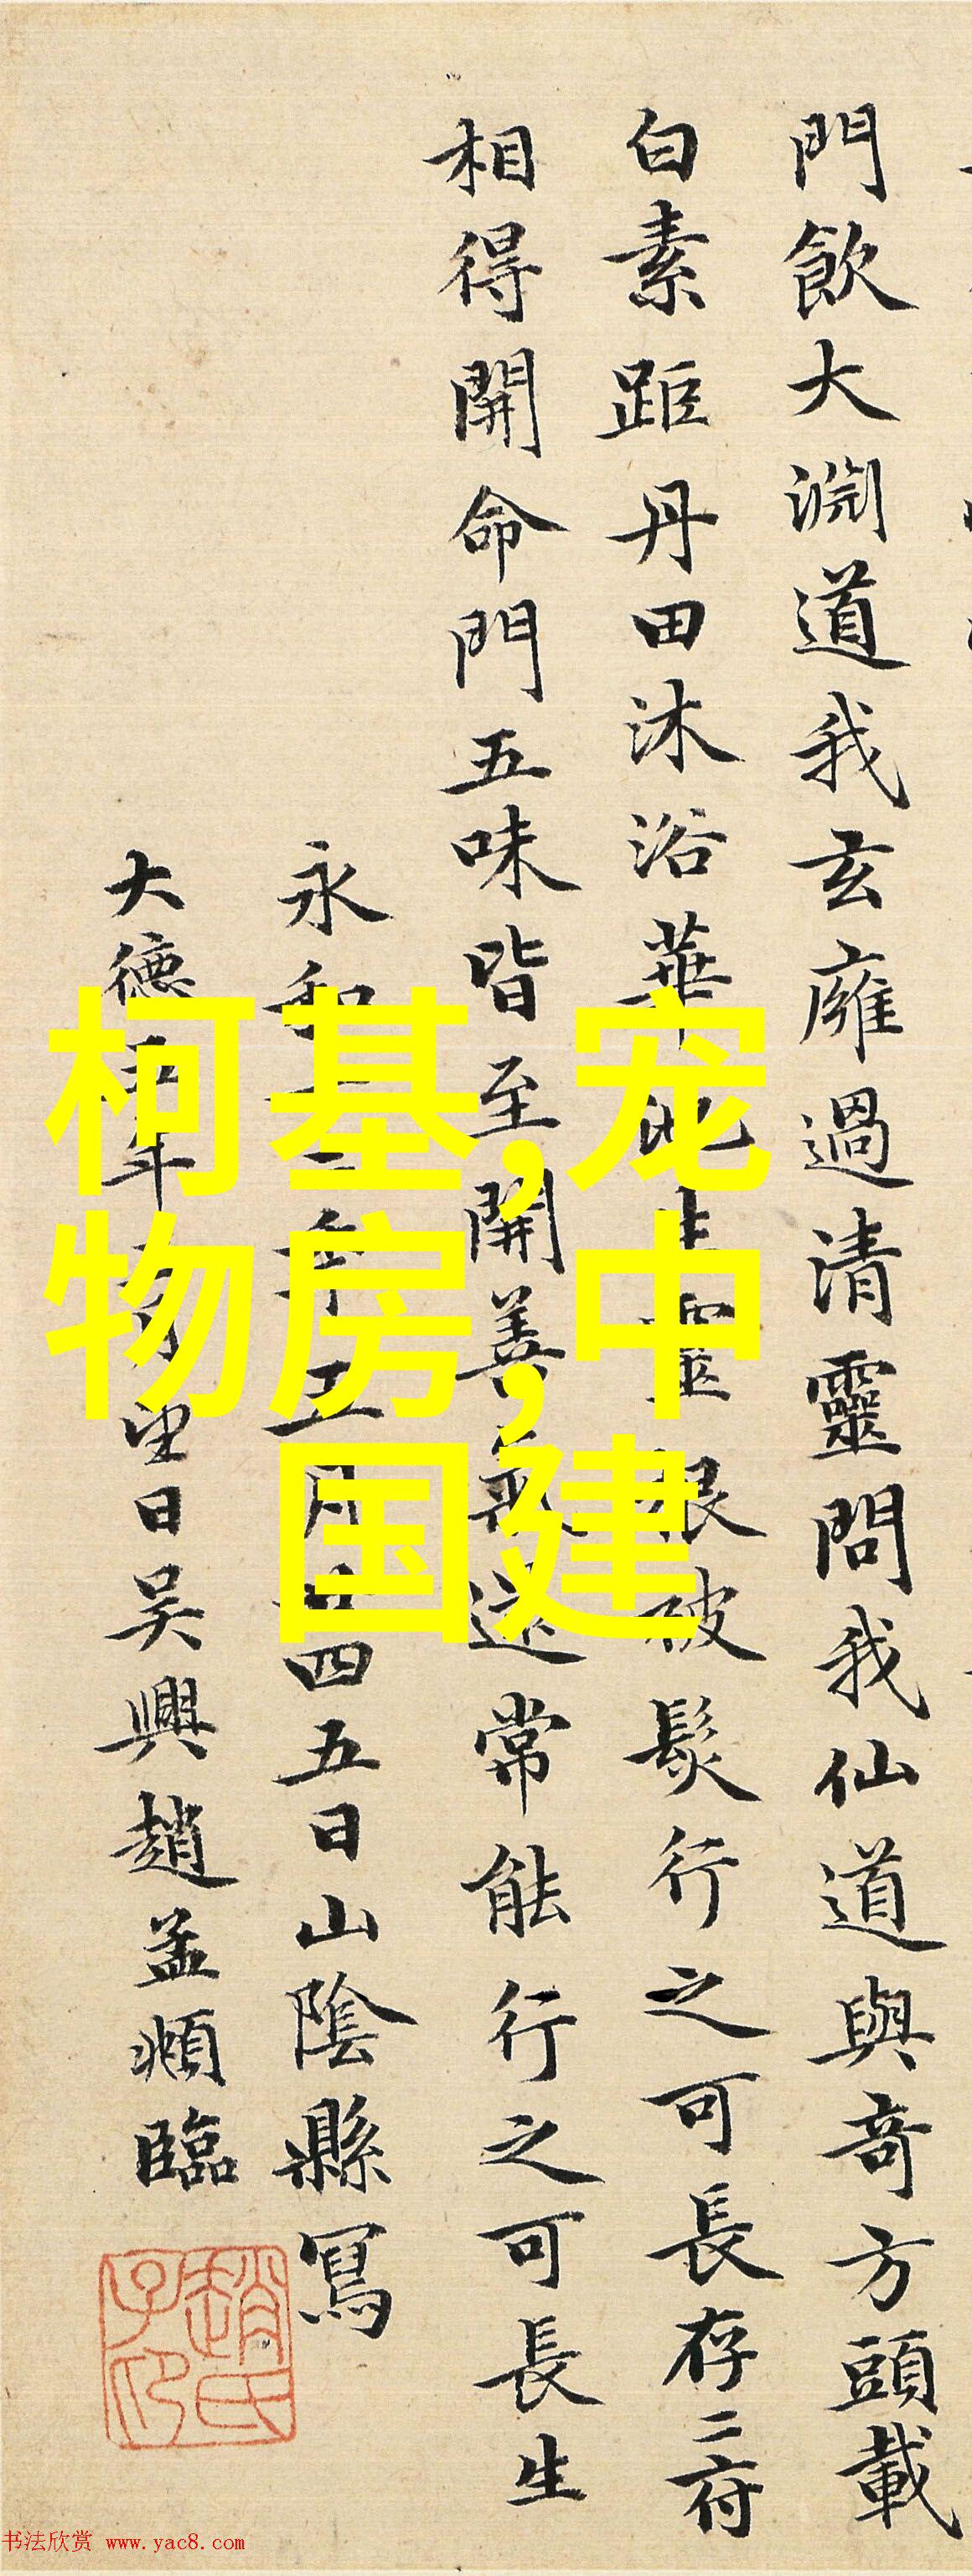 門飲大淵道我玄廱過清靈問我仙道與奇方頭載
白素距丹田沐浴華池生靈根被髮行之可長存二府
相得開命門五味皆至開善氣還常能行之可長生
永和十二年五月廿四五日山陰縣寫
大德五年月望日吳興趙孟頫臨
趙氏子印
柯基,宠
物房,中
国建
书法欣赏 www.yac8.com